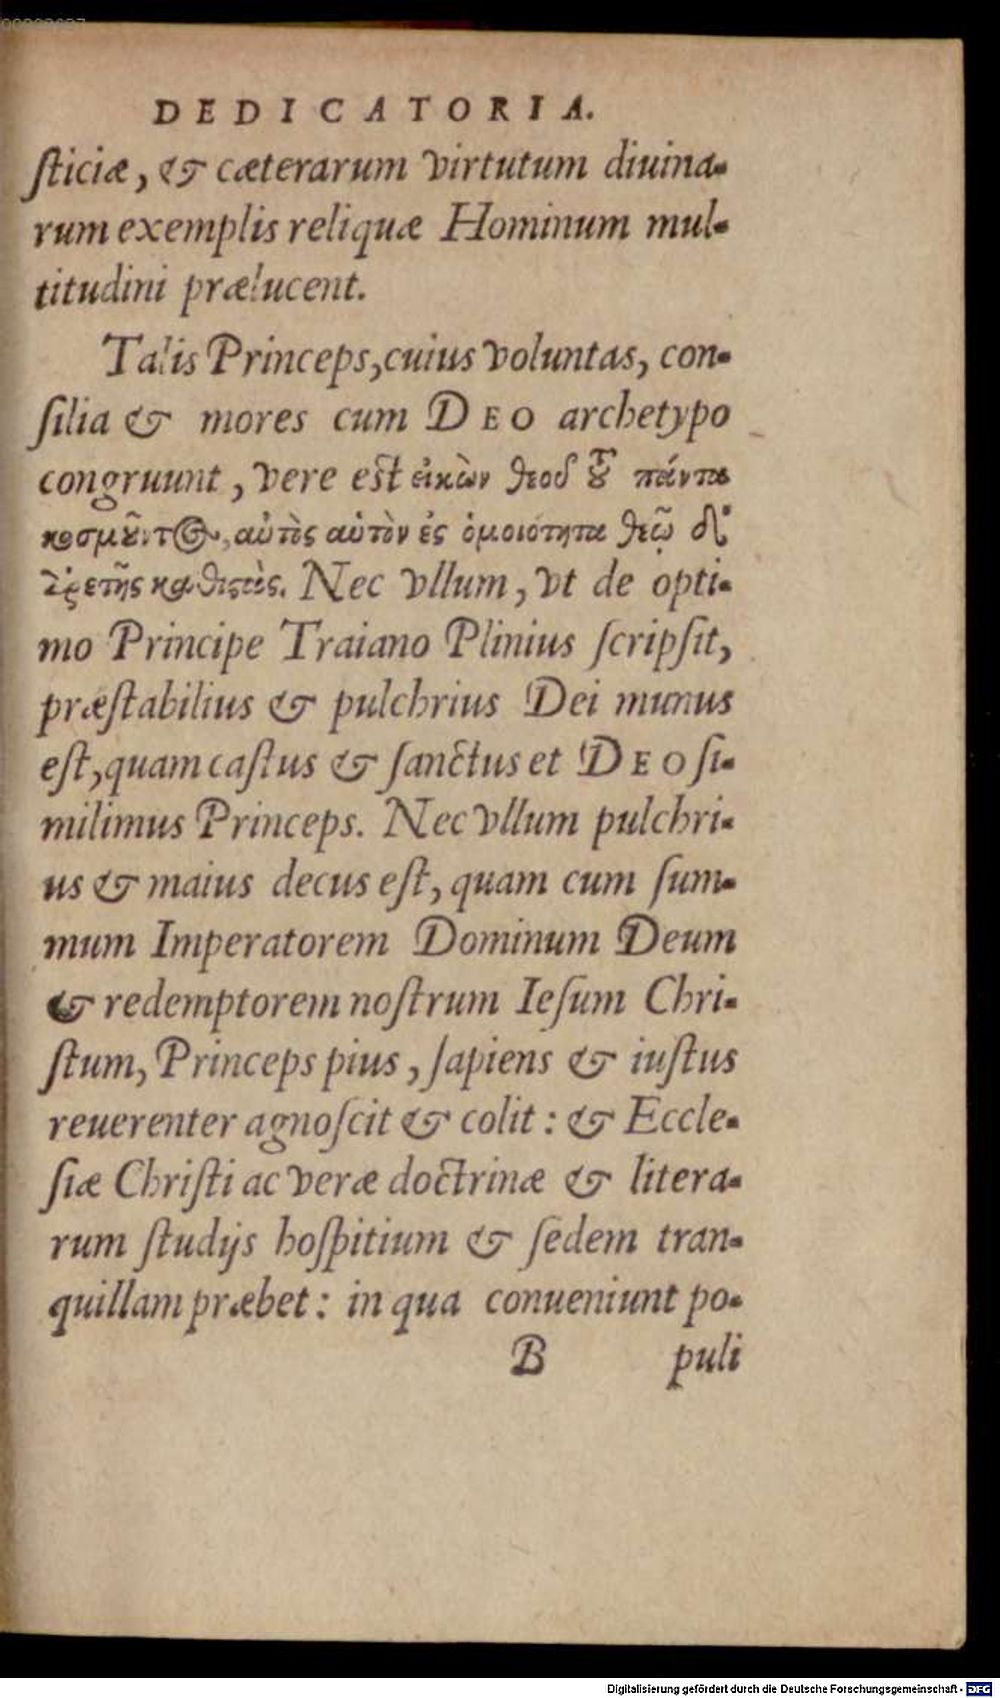 DEDICATORIA.
ſticiæ, & cæterarum virtutum diuina-
rum exemplis reliquæ Hominum mul-
titudini prælucent.
Talis Princeps, cuius voluntas, con-
ſilia & mores cum DEO archetypo
congruunt, vere eſt εἰκὼν θεοῦ τοῦ πάντα
κοσμοῦντος, αὐτὸς αὑτὸν ἐς ὁμοιότητα θεῷ δι'
ἀρετῆς καθιστὰς. Nec vllum, vt de opti-
mo Principe Traiano Plinius ſcripſit,
præſtabilius & pulchrius Dei munus
eſt, quam caſtus & ſanctus et DEO ſi-
milimus Princeps. Nec vllum pulchri-
us & maius decus eſt, quam cum ſum-
mum Imperatorem Dominum Deum
& redemptorem noſtrum Ieſum Chri-
ſtum, Princeps pius, ſapiens & iuſtus
reuerenter agnoſcit & colit: & Eccle-
ſiæ Chriſti ac veræ doctrinæ & litera-
rum ſtudijs hoſpitium & ſedem tran-
quillam præbet: in qua conueniunt po-
B puli
Digitalisierung gefördert durch die Deutsche Forschungsgemeinschaft - DFG